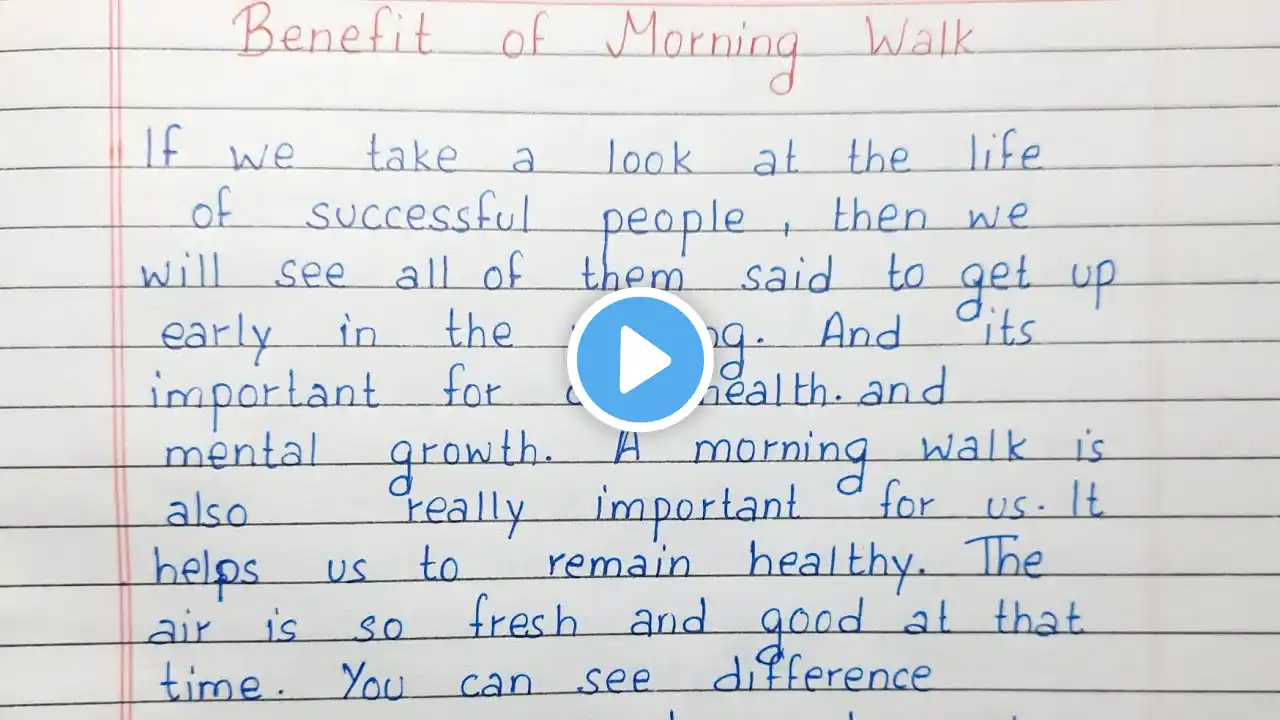 Benefit of Morning Walk
If we take a look at the life
of successful people, then we
will see all of them said to get up
early in the And its
important for health. and
mental growth. A morning walk is
also really important for us. It
helps us to remain healthy. The
air is so fresh and good at that
time. You can see difference